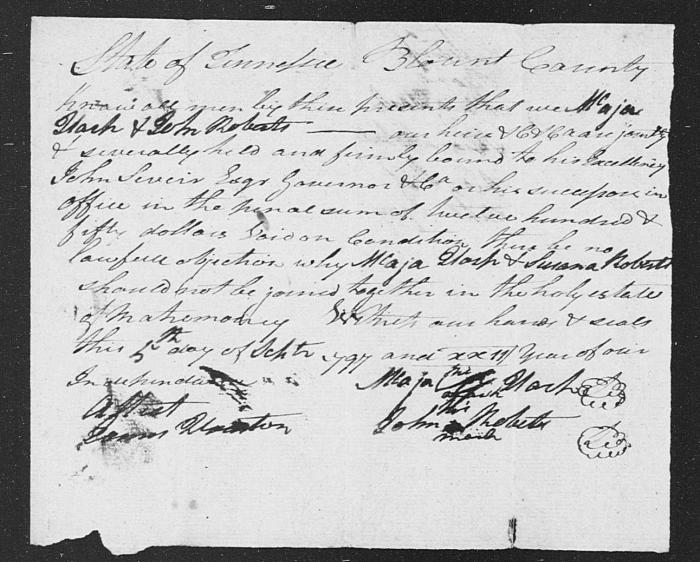 State of Tennessee Blount County
Know all men by these presents that we Mcaja
& John Roberts — our heirs &C &C are jointly
& severally held and firmly bound to his Excellency
John Seveir Esqr Governor & Ca or his successors in
office in the penal sum of twelve hundred &
fifty dollars Void on Condition there be no
lawfull objection why Mcaja & Susana Roberts
should not be joined together in the holy estate
of Matremoney Witness our hands & seals
this 5th day of Septr 1797 and XXII Year of our
Independence
Mcaja his mark
Attest
John his mark Roberts
James Houston